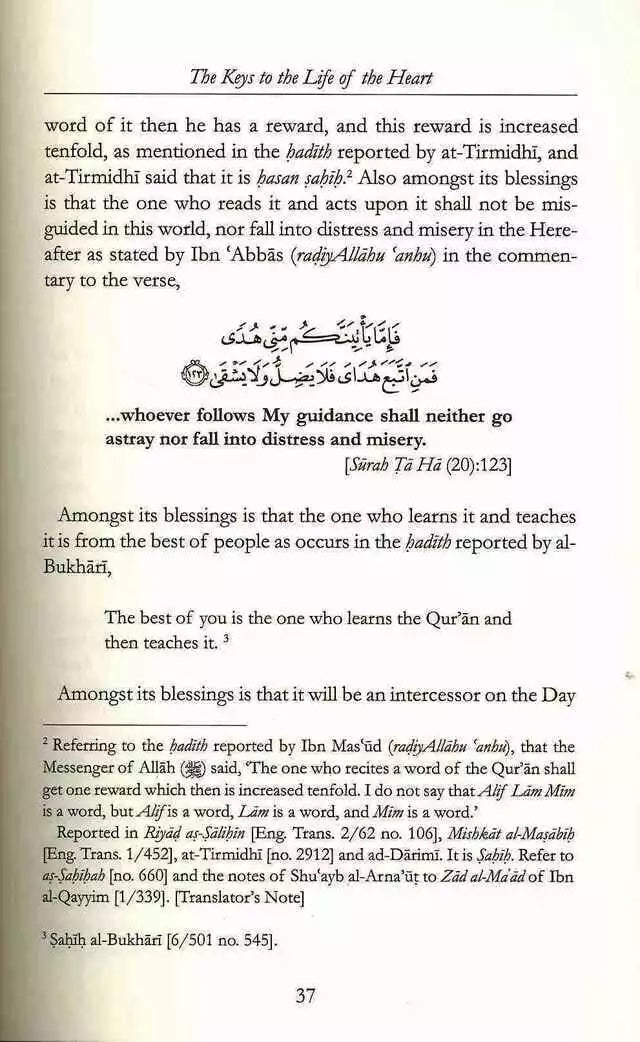 The Keys to the Life of the Heart
word of it then he has a reward, and this reward is increased
tenfold, as mentioned in the ḥadīth reported by at-Tirmidhī, and
at-Tirmidhī said that it is ḥasan ṣaḥīḥ.² Also amongst its blessings
is that the one who reads it and acts upon it shall not be mis-
guided in this world, nor fall into distress and misery in the Here-
after as stated by Ibn ʿAbbās (raḍiyAllāhu ʿanhu) in the commen-
tary to the verse,
فَإِمَّا يَأْتِيَنَّكُم مِّنِّي هُدًى
فَمَنِ ٱتَّبَعَ هُدَايَ فَلَا يَضِلُّ وَلَا يَشْقَىٰ ١٢٣
...whoever follows My guidance shall neither go
astray nor fall into distress and misery.
[Sūrah Ṭā Hā (20):123]
Amongst its blessings is that the one who learns it and teaches
it is from the best of people as occurs in the ḥadīth reported by al-
Bukhārī,
The best of you is the one who learns the Qur’ān and
then teaches it. ³
Amongst its blessings is that it will be an intercessor on the Day
² Referring to the ḥadīth reported by Ibn Masʿūd (raḍiyAllāhu ʿanhu), that the
Messenger of Allāh (ﷺ) said, ‘The one who recites a word of the Qur’ān shall
get one reward which then is increased tenfold. I do not say that Alif Lām Mīm
is a word, but Alif is a word, Lām is a word, and Mīm is a word.’
Reported in Riyāḍ aṣ-Ṣāliḥīn [Eng. Trans. 2/62 no. 106], Mishkāt al-Maṣābīḥ
[Eng. Trans. 1/452], at-Tirmidhī [no. 2912] and ad-Dārimī. It is Ṣaḥīḥ. Refer to
aṣ-Ṣaḥīḥah [no. 660] and the notes of Shuʿayb al-Arna’ūṭ to Zād al-Maʿād of Ibn
al-Qayyim [1/339]. [Translator’s Note]
³ Ṣaḥīḥ al-Bukhārī [6/501 no. 545].
37